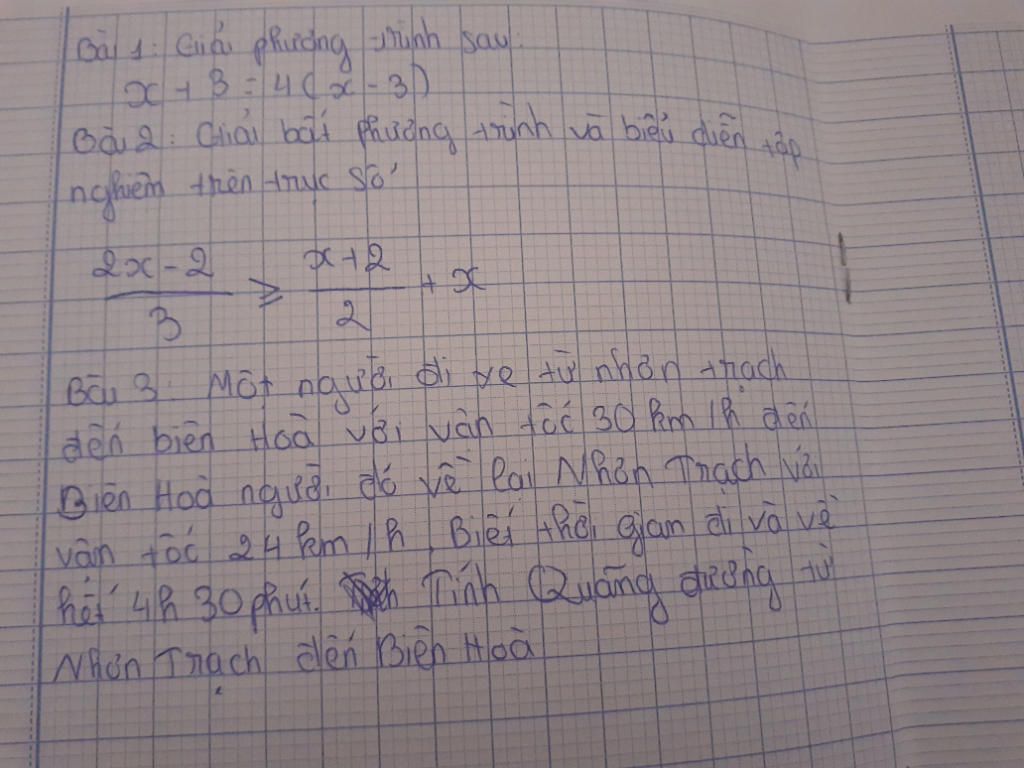 Bài 1: Giải phương trình sau:
x + 3 = 4(x - 3)
Bài 2: Giải bất phương trình và biểu diễn tập
nghiệm trên trục số
2x - 2 / 3 ≥ x + 2 / 2 + x
Bài 3: Một người đi xe từ nhơn trạch
đến biên Hoà với vận tốc 30 km/h đến
Biên Hoà người đó về lại Nhơn Trạch với
vận tốc 24 km/h. Biết thời gian đi và về
hết 4h 30 phút. Tính Quãng đường từ
Nhơn Trạch đến Biên Hoà